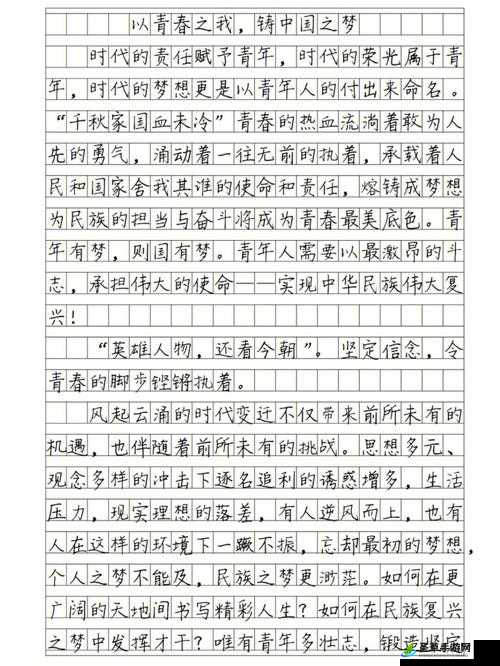 以青春之我，铸中国之梦
时代的责任赋予青年，时代的荣光属于青
年，时代的梦想更是以青年人的付出来命名。
“千秋家国血未冷”青春的热血流淌着敢为人
先的勇气，涌动着一往无前的执着，承载着人
民和国家舍我其谁的使命和责任，熔铸成梦想
为民族的担当与奋斗将成为青春最美底色。青
年有梦，则国有梦。青年人需要以最激昂的斗
志，承担伟大的使命——实现中华民族伟大复
兴！
“英雄人物，还看今朝”。坚定信念，令
青春的脚步铿锵执着。
风起云涌的时代变迁不仅带来前所未有的
机遇，也伴随着前所未有的挑战。思想多元、
观念多样的冲击下逐名追利的诱惑增多，生活
压力，现实理想的落差，有人逆风而上，也有
人在这样的环境下一蹶不振，忘却最初的梦想，
个人之梦不能及，民族之梦更渺茫。如何在更
广阔的天地间书写精彩人生？如何在民族复兴
之梦中发挥才干？唯有青年多壮志，锻造坚定